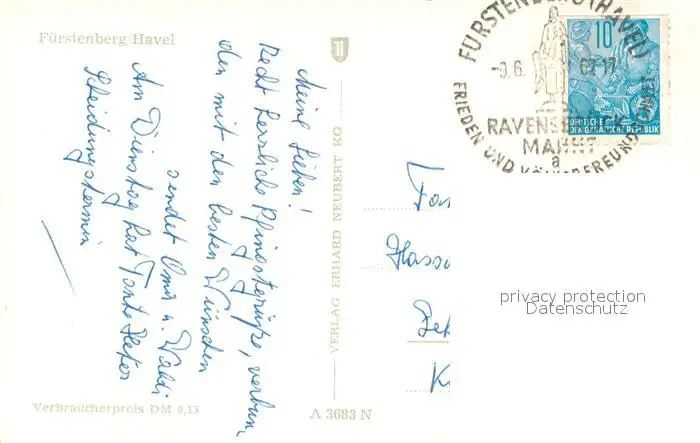 Fürstenberg/Havel
Meine Lieben!
Recht herzliche Pfingstgrüße, verbun-
den mit den besten Wünschen
sendet Oma u. Waldi
Am Dienstag hat Tante
Scheidungstermin
VERLAG ERHARD NEUBERT KG
Verbraucherpreis DM 0,15
A 3683 N
FÜRSTENBERG (HAVEL)
-9.6.
RAVENSBRÜCK
MAHNT
a
FRIEDEN UND VÖLKERFREUNDSCHAFT
10
DEUTSCHE
DEMOKRATISCHE REPUBLIK
Fam
Hasso
K
privacy protection
Datenschutz